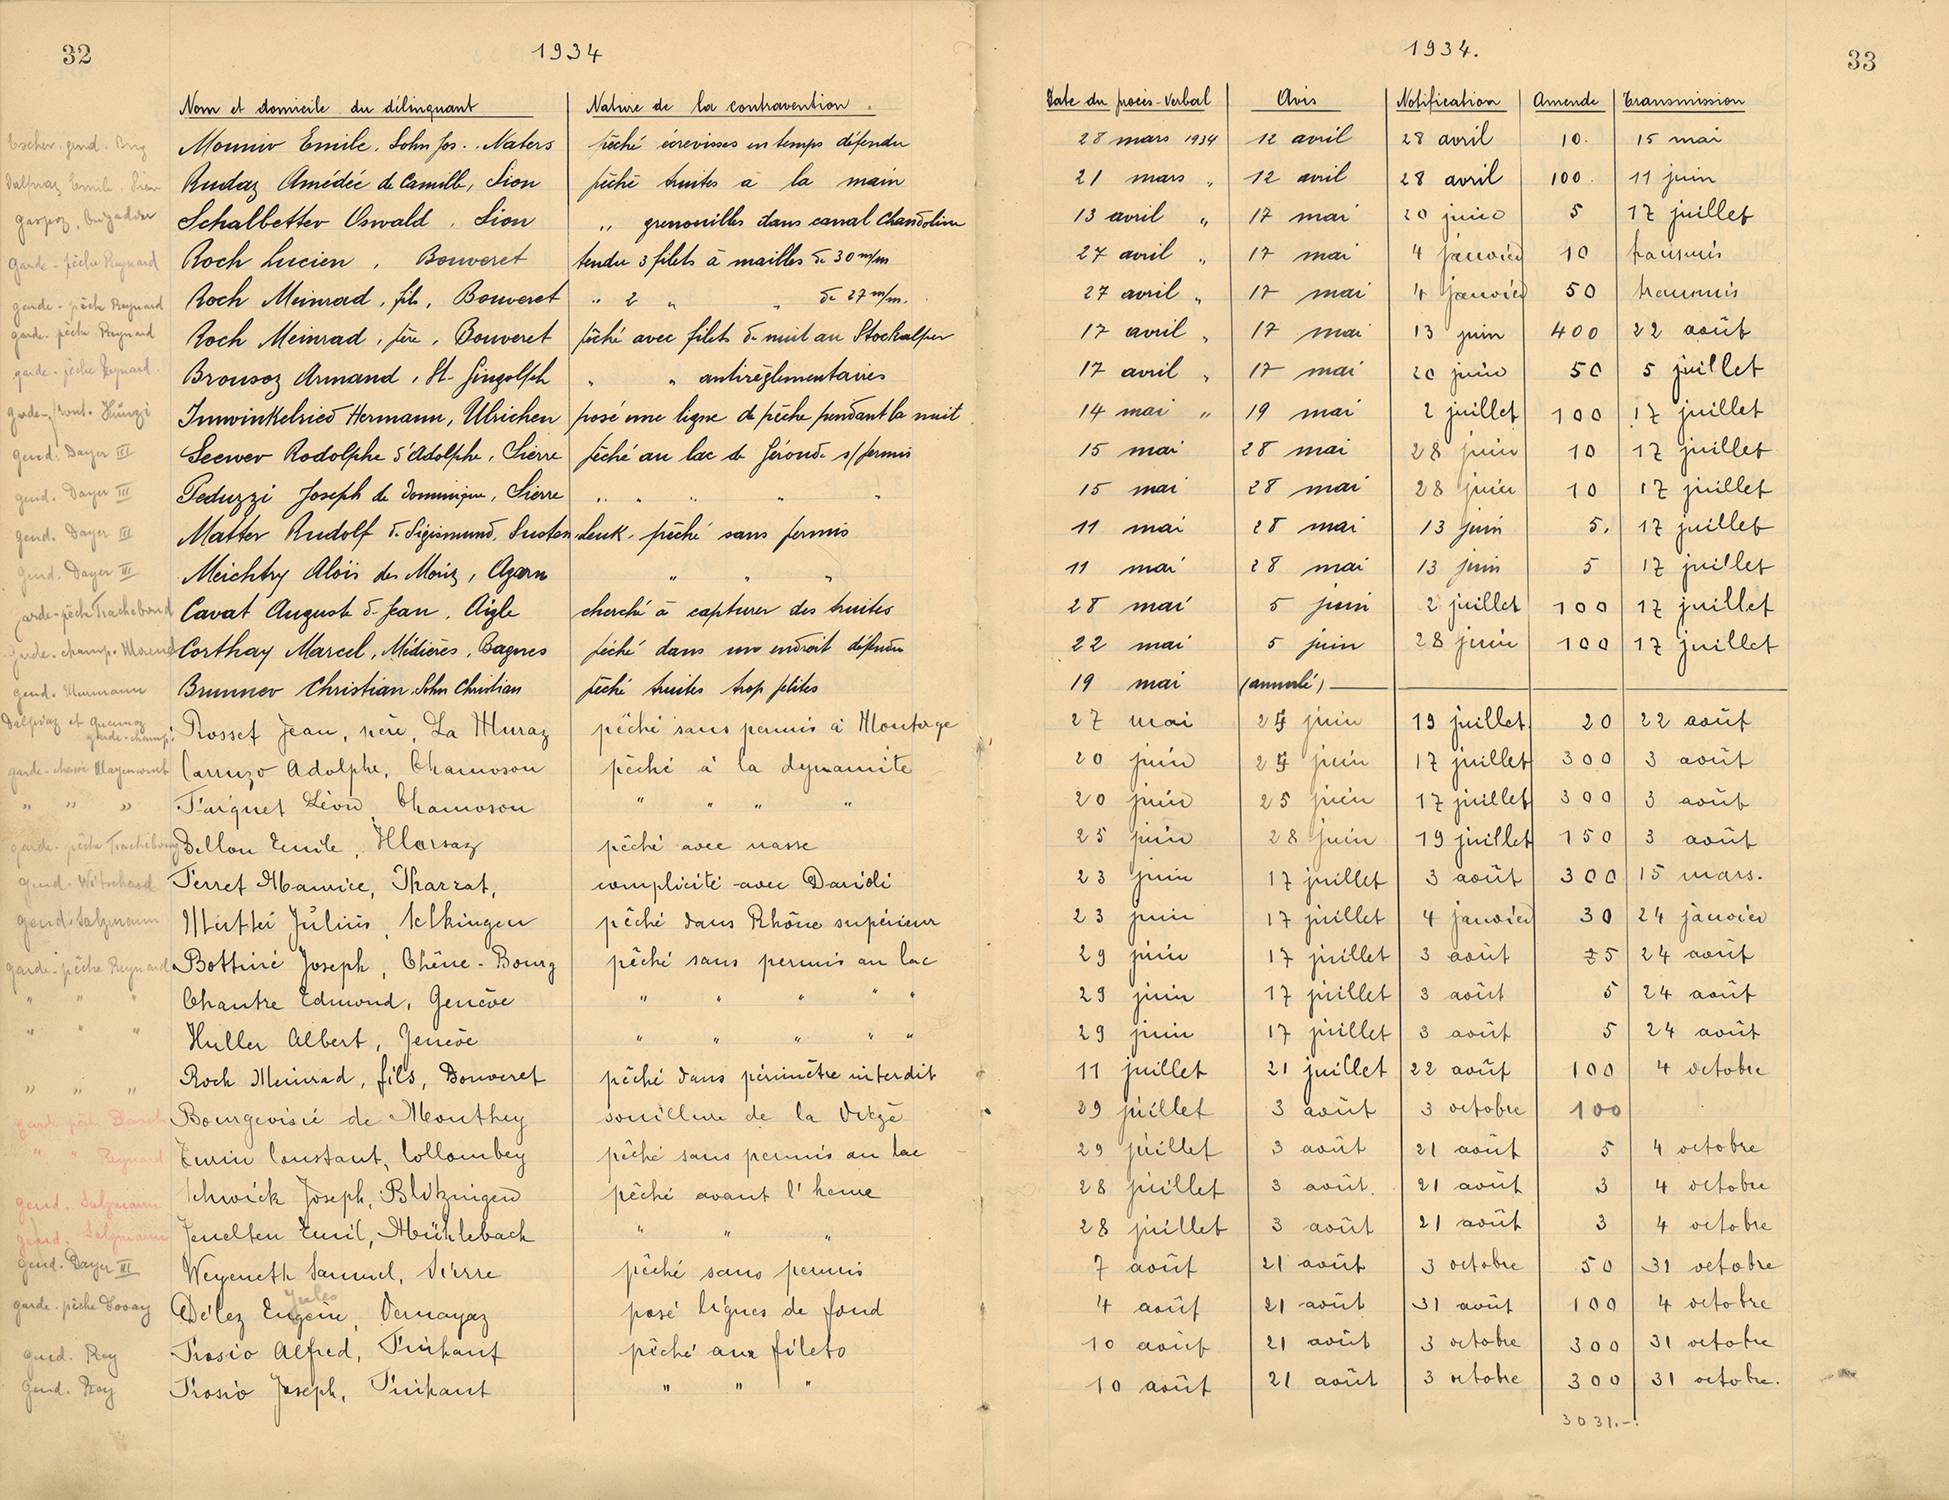 32
1934
Nom et domicile du délinquant Nature de la contravention.
Escher. gend. Brig Mounir Emile, Sohn Jos. Naters pêché écrevisses en temps défendu
Dalpiaz Emile. Sion Rudaz Amédée de Camille, Sion pêché truites à la main
gaspoz, brigadier Schalbetter Oswald, Sion " grenouilles dans canal Chandoline
garde-pêche Reynard Roch Lucien, Bouveret tendu 3 filets à mailles de 30 m/m
garde-pêche Reynard Roch Meinrad, fils, Bouveret " 2 " " de 27 m/m.
garde-pêche Reynard Roch Meinrad, père, Bouveret pêché avec filets de nuit au Stockalper
garde-pêche Reynard. Brousoz Armand, St-Gingolph " " antiréglementaires
garde-front. Hünzi Imwinkelried Hermann, Ulrichen posé une ligne de pêche pendant la nuit
gend. Dayer III Seewer Rodolphe d'Adolphe, Sierre pêché au lac de Géronde s/permis
gend. Dayer III Peduzzi Joseph de Dominique, Sierre " " " " "
gend. Dayer III Matter Rudolf d. Sigismund, Susten, Leuk. pêché sans permis
gend. Dayer III Meichtry Alois des Moriz, Agarn " " "
garde-pêche Trachebond Cavat August d. Jean, Aigle cherché à capturer des truites
garde-champ. Morend Corthay Marcel, Médières, Bagnes pêché dans un endroit défendu
gend. Brunner Christian, Sohn Christian pêché truites trop petites
et garde-champ. Rosset Jean, père, La Muraz pêché sans permis à Montorge
garde-chasse Carruzo Adolphe, Chamoson pêché à la dynamite
" " " Faiguet Léon, Chamoson " " " "
garde-pêche Trachebond Dellon Emile, Illarsaz pêché avec nasse
gend. Witschard Perret Maurice, Pharrat, complicité avec Darioli
gend. Salzmann Julius, Selkingen pêché dans Rhône supérieur
garde-pêche Reynard Bottiné Joseph, Chêne-Bourg pêché sans permis au lac
" " " Chantre Edmond, Genève " " " " "
" " " Huller Albert, Genève " " " " "
" " " Roch Meinrad, fils, Bouveret pêché dans périmètre interdit
gard pêche Bourgeoisie de Monthey souillure de la Vièze
" " Reynard Turin Constant, Collombey pêché sans permis au lac
gend. Salzmann Schwick Joseph, Blitzingen pêché avant l'heure
gend. Salzmann Jenelten Emil, Mühlebach " " "
gend. Dayer III Weyeneth Samuel, Sierre pêché sans permis
Jules
garde-pêche Lovay Délez Eugène, Vernayaz posé lignes de fond
gend. Roy Trosio Alfred, Trühant pêché aux filets
gend. Roy Trosio Joseph, Trühant " " "
33
1934.
Date du procès-verbal Avis Notification Amende Transmission
28 mars 1934 12 avril 28 avril 10. 15 mai
21 mars " 12 avril 28 avril 100. 11 juin
13 avril " 17 mai 20 juin 5 17 juillet
27 avril " 17 mai 4 janvier 10 transmis
27 avril " 17 mai 4 janvier 50 transmis
17 avril " 17 mai 13 juin 400 22 août
17 avril " 17 mai 20 juin 50 5 juillet
14 mai " 19 mai 2 juillet 100 17 juillet
15 mai 28 mai 28 juin 10 17 juillet
15 mai 28 mai 28 juin 10 17 juillet
11 mai 28 mai 13 juin 5. 17 juillet
11 mai 28 mai 13 juin 5 17 juillet
28 mai 5 juin 2 juillet 100 17 juillet
22 mai 5 juin 28 juin 100 17 juillet
19 mai (annulé)
27 mai 25 juin 19 juillet 20 22 août
20 juin 25 juin 17 juillet 300 3 août
20 juin 25 juin 17 juillet 300 3 août
25 juin 28 juin 19 juillet 150 3 août
23 juin 17 juillet 3 août 300 15 mars.
23 juin 17 juillet 4 janvier 30 24 janvier
29 juin 17 juillet 3 août 5 24 août
29 juin 17 juillet 3 août 5 24 août
29 juin 17 juillet 3 août 5 24 août
11 juillet 21 juillet 22 août 100 4 octobre
29 juillet 3 août 3 octobre 100
29 juillet 3 août 21 août 5 4 octobre
28 juillet 3 août. 21 août 3 4 octobre
28 juillet 3 août 21 août 3 4 octobre
7 août 21 août 3 octobre 50 31 octobre
4 août 21 août 31 août 100 4 octobre
10 août 21 août 3 octobre 300 31 octobre
10 août 21 août 3 octobre 300 31 octobre.
3031.-